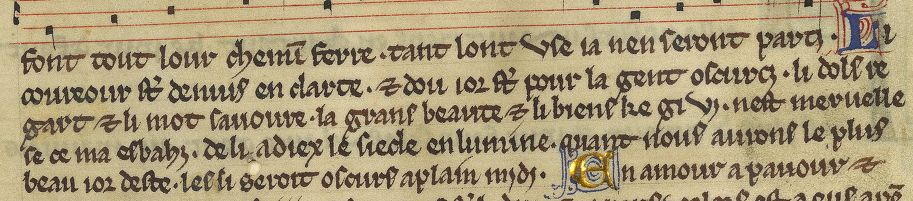 font tout lour chemī ferre · tant lont use ia nen seront partꝫ · Li
coureour sť deuuis en clarte · ⁊ dou ior sť pour la gent oscurcꝫ · li dols re
gart ⁊ li mot sauoure · la grans beaute ⁊ li biens ke gi vi · nest meruelle
se ce ma esbahꝫ · de li a diex le siecle enlumine · quant nous aurons le plus
beau ior deste · les li seroit oscurs a plain midꝫ · En amour a paour ⁊